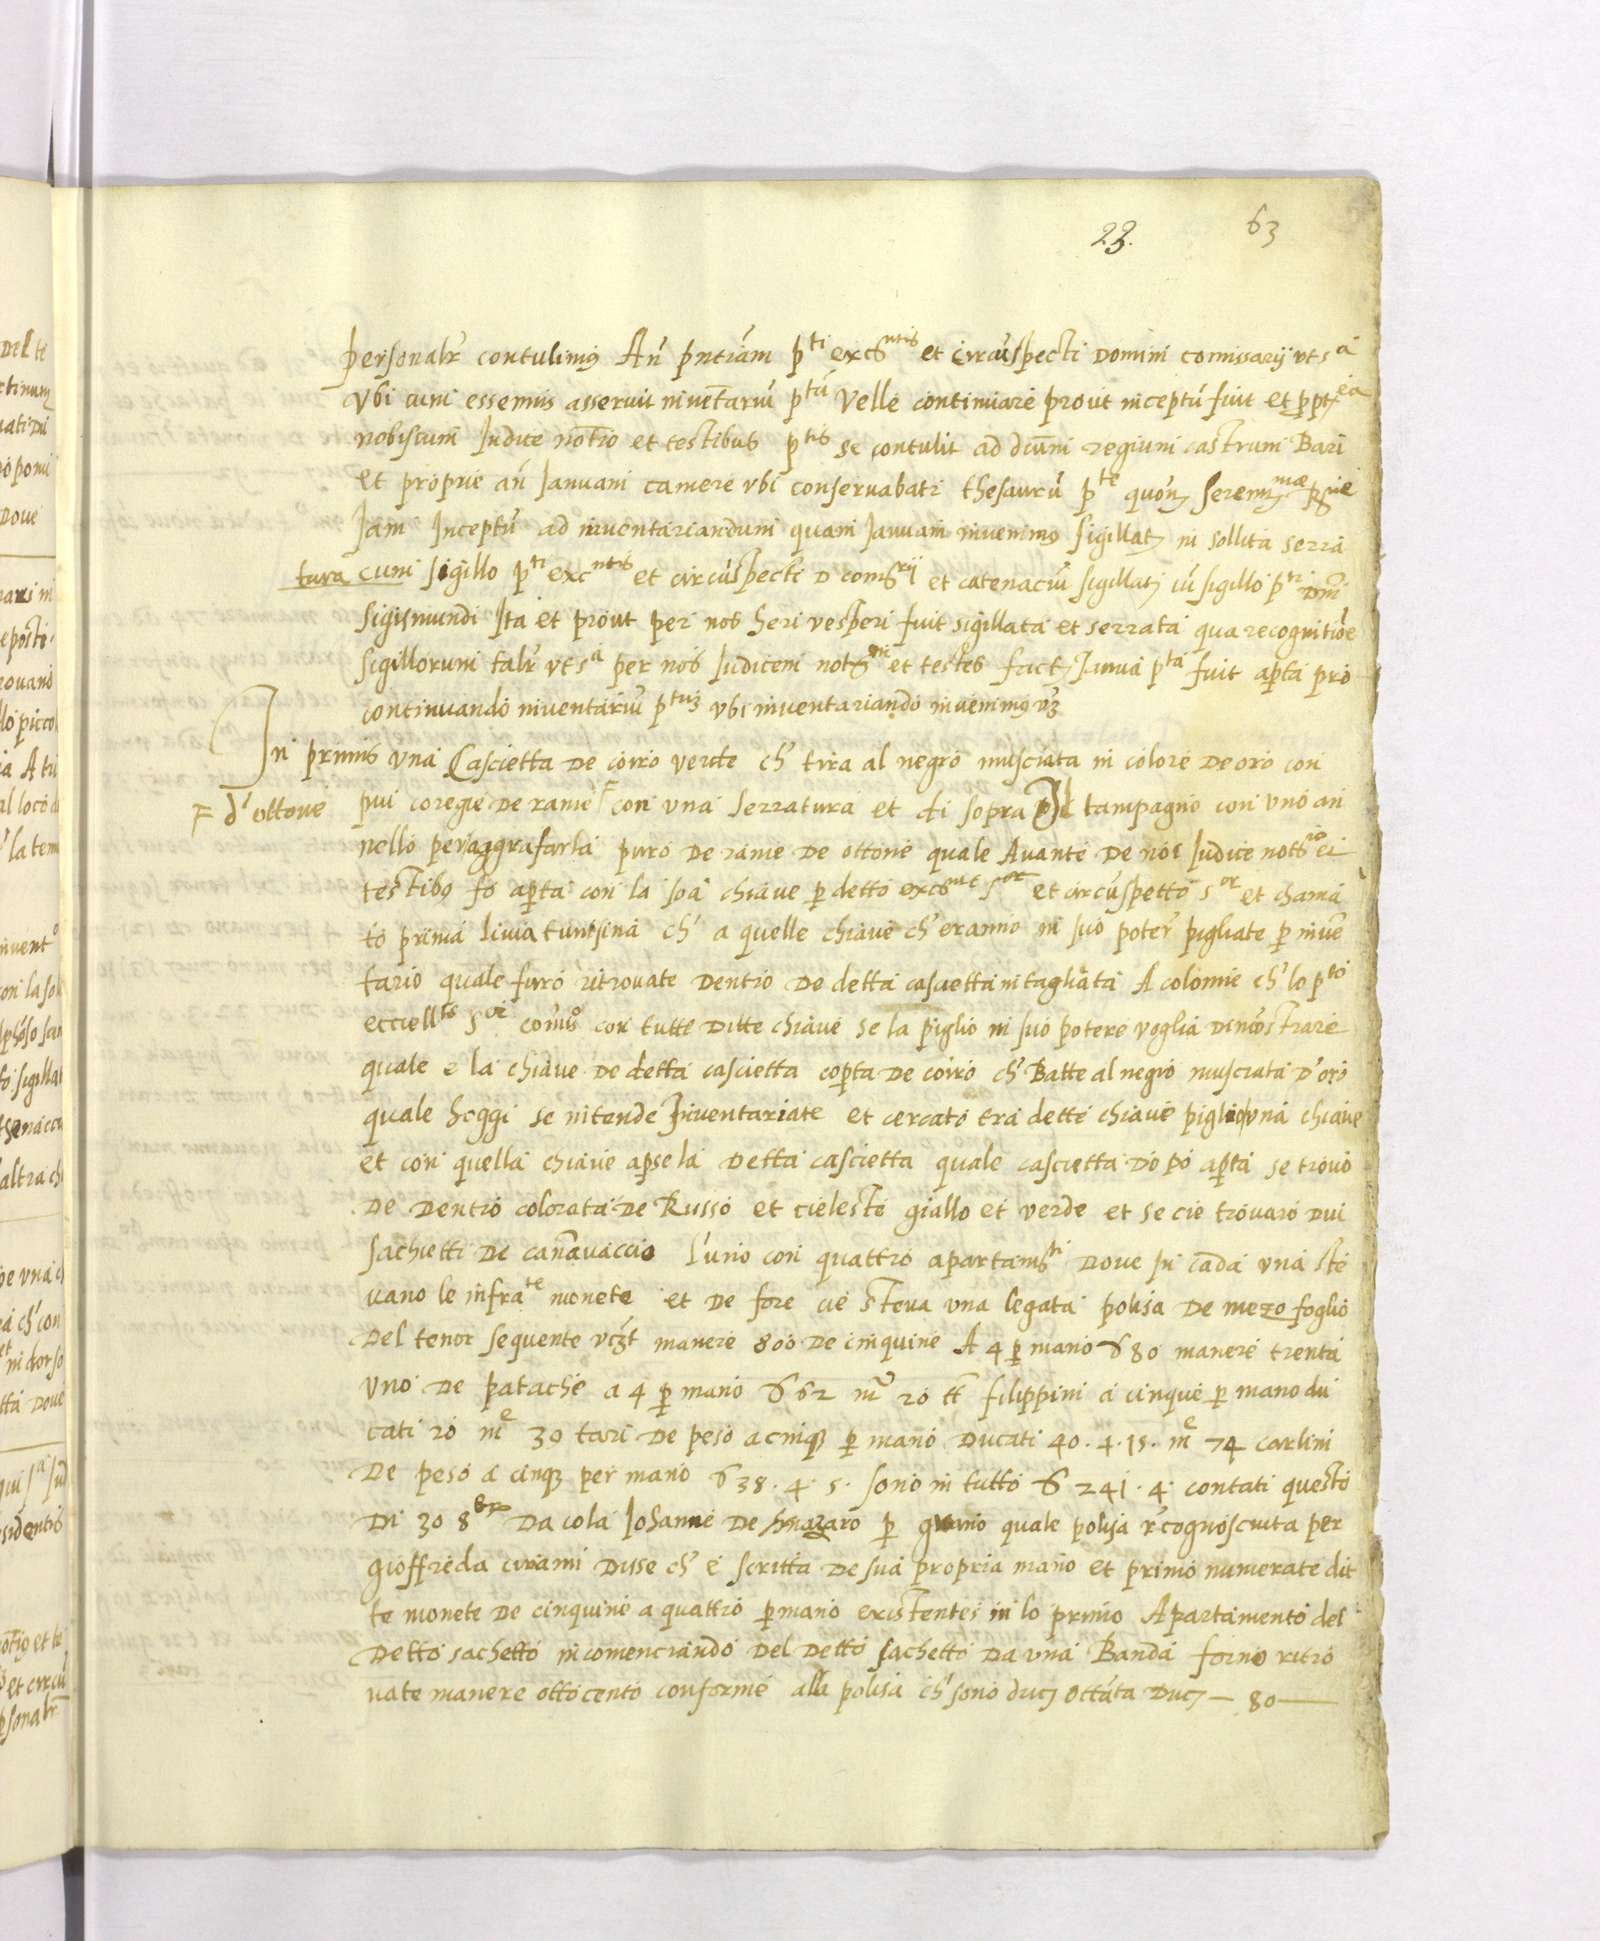 23. 63
personalr contulimus An pntiam pti excntis et circuspecti Domini comissarij ut sa
Ubi cum essemus asseruit inventariu ptu Velle continuare prout inceptu fuit et ppterea
nobiscum Iudice notro et testibus ptis se contulit ad dcum regium castrum Bari
et proprie an Ianuam camere ubi conservabatr thesauru pte quond serenmae Rgie
Iam Inceptu ad inventariandum quam Ianuam invenimus sigillat in sollita serra
tura cum sigillo pti excntis et circuspecti D comsrij et catenaciu sigillat cu sigillo pti Dni
sigismundi Ita et prout per nos heri vesperi fuit sigillata et serrata qua recognitioe
sigillorum talr ut sa per nos Iudicem notm et testes fact Ianua pta fuit apta pro
continuando inventariu ptum ubi inventariando invenimus vz
In primis una Cascietta de coiro verde ch tira al negro musciata in colore de oro con
F d'ottone
pui coregie de rame F con una serratura et di sopra Il tampagno con uno an
nello per aggrafarla puro de rame de ottone quale Avante de noi Iudice notro et
testibus fo apta con la soa chiave p detto excnte sor et circuspetto sor et chama
to prima livia tunisina ch a quelle chiave ch eranno in suo poter pigliate p inve
tario quale furo ritrovate dentro de detta cascietta intagliata A colonne ch lo pto
eccellte sor comso con tutte ditte chiave se la piglio in suo potere voglia dimostrare
quale e la chiave de detta cascietta copta de coiro ch Batte al negro musciata d'oro
quale hoggi se intende Inventariate et cercato tra dette chiave piglio una chiave
et con quella chiave apse la detta cascietta quale cascietta dopo apta se trovo
de dentro colorata de Russo et cieleste giallo et verde et se cie trovaro dui
sachietti de canavaccio l'uno con quattro apartamti dove in cada una ste
vano le infrate monete et de fore cie steva una legata polisa de mezo foglio
del tenor sequente vzt manere 800 de cinquine A 4 p mano D 80 manere trenta
uno de patache a 4 p mano D 62 me 20 tt filippini a cinque p mano du
cati 20 me 30 tari de peso a cinq p mano Ducati 40 . 4 . 15 . me 74 carlini
de peso a cinq per mano D 38 . 4 . 5 . sono in tutto D 241 . 4 contati questo
di 30 8bro da cola Iohanne de p quale polisa rcognosciuta per
gioffreda disse ch e scritta de sua propria mano et primo numerate dit
te monete de cinquine a quattro p mano existentes in lo primo Apartamento del
detto sachetto incomenciando del detto sachetto da una Banda forno ritro
vate manere ottocento conforme alla polisa ch sono duc ottata Duc — 80 —